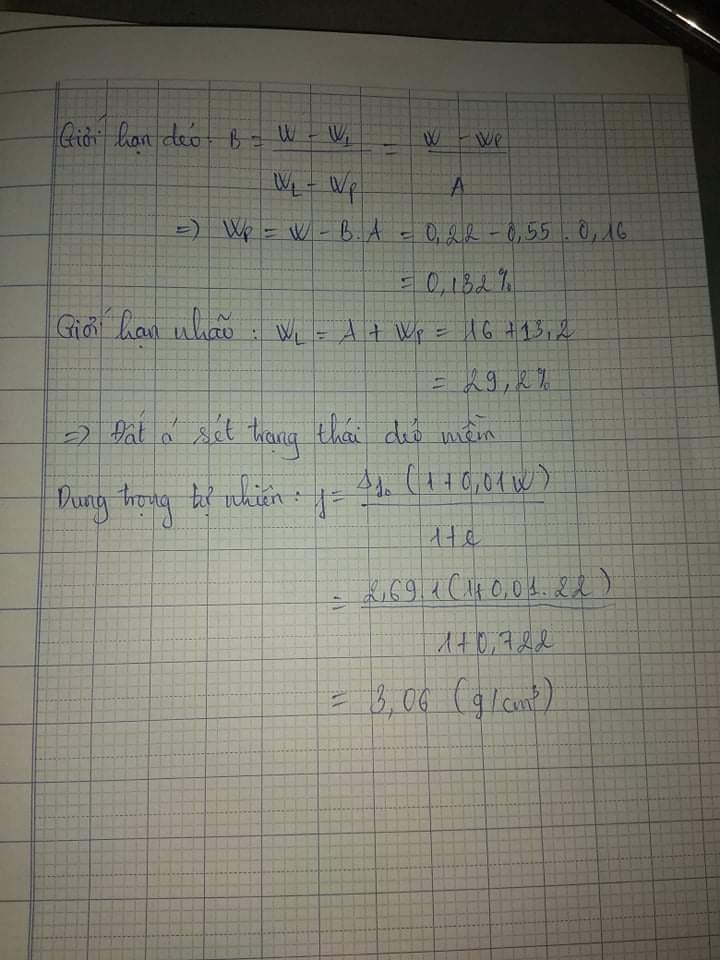 Giới hạn dẻo. B = (W - W₁)/(W_L - W_P) = (W - W_P)/A
=> W_P = W - B.A = 0,22 - 0,55 . 0,16
= 0,132%
Giới hạn nhão : W_L = A + W_P = 16 + 13,2
= 29,2%
=> Đất á sét trạng thái dẻo mềm
Dung trọng tự nhiên : γ = Δγ₀ (1+0,01W)/(1+e)
= 2,69.1(1+0,01.22)/(1+0,722)
= 3,06 (g/cm³)